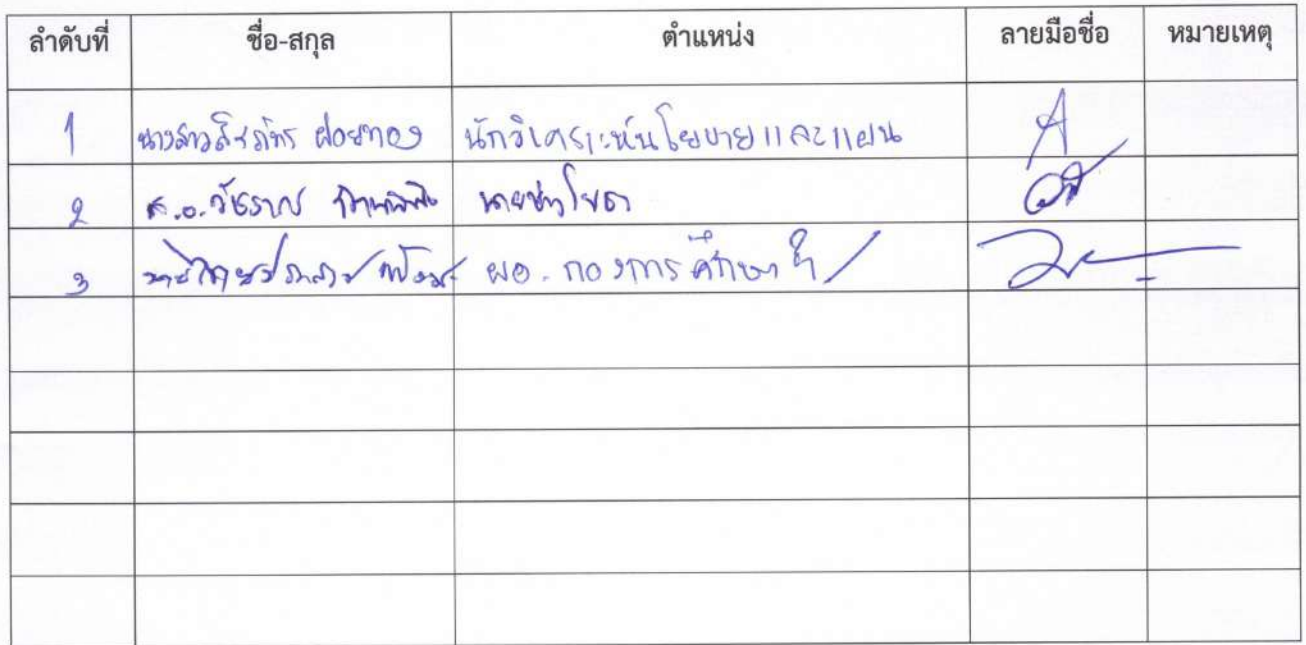 ลำดับที่ ชื่อ-สกุล ตำแหน่ง ลายมือชื่อ หมายเหตุ
1 นางสาว ฝอยทอง นักวิเคราะห์นโยบายและแผน
2 ส.อ. นายช่างโยธา
3 นาย ผอ. กองการศึกษาฯ